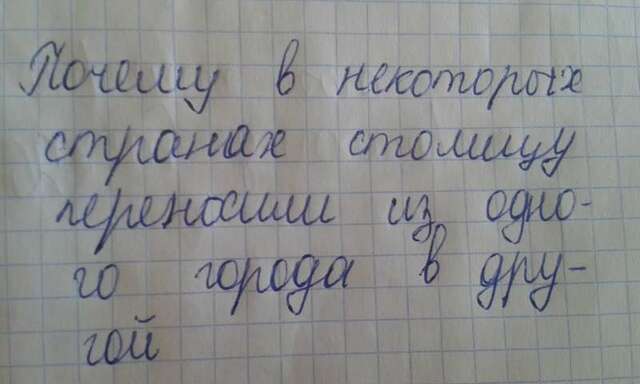 Почему в некоторых
странах столицу
переносили из одно-
го города в дру-
гой